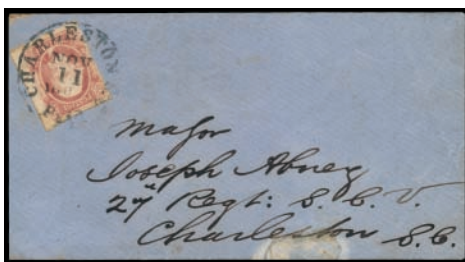 CHARLESTON
NOV
11
Major
Joseph Abney
27th Regt: S. C. V.
Charleston S.C.